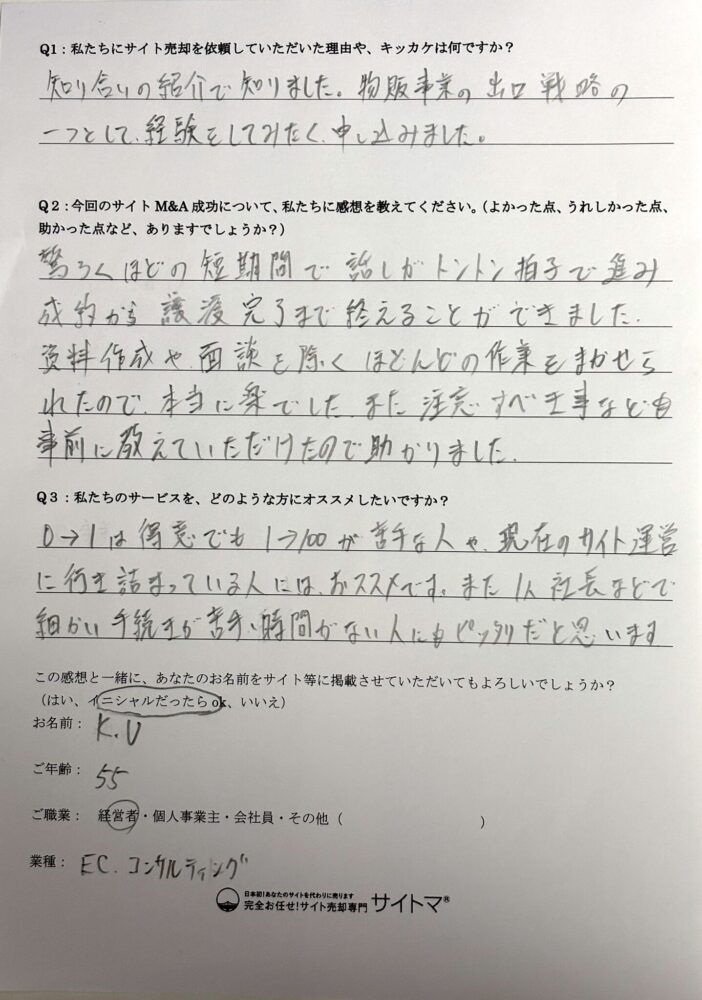 Q1：私たちにサイト売却を依頼していただいた理由や、キッカケは何ですか？
知り合いの紹介で知りました。物販事業の出口戦略の
一つとして、経験をしてみたく、申し込みました。
Q2：今回のサイトM&A成功について、私たちに感想を教えてください。（よかった点、うれしかった点、
助かった点など、ありますでしょうか？）
驚ろくほどの短期間で話しがトントン拍子で進み
成約から譲渡完了まで終えることができました.
資料作成や、面談を除くほとんどの作業をまかせら
れたので、本当に楽でした. また注意すべき事なども
事前に教えていただけたので助かりました.
Q3：私たちのサービスを、どのような方にオススメしたいですか？
0→1は得意でも1→100が苦手な人や、現在のサイト運営
に行き詰まっている人には、おススメです。また1人社長などで
細かい手続きが苦手、時間がない人にもピッタリだと思います
この感想と一緒に、あなたのお名前をサイト等に掲載させていただいてもよろしいでしょうか？
（はい、イニシャルだったらok、いいえ）
お名前： K.U
ご年齢： 55
ご職業： 経営者・個人事業主・会社員・その他（ ）
業種： EC. コンサルティング
日本初！あなたのサイトを代わりに売ります
完全お任せ！サイト売却専門 サイトマ®